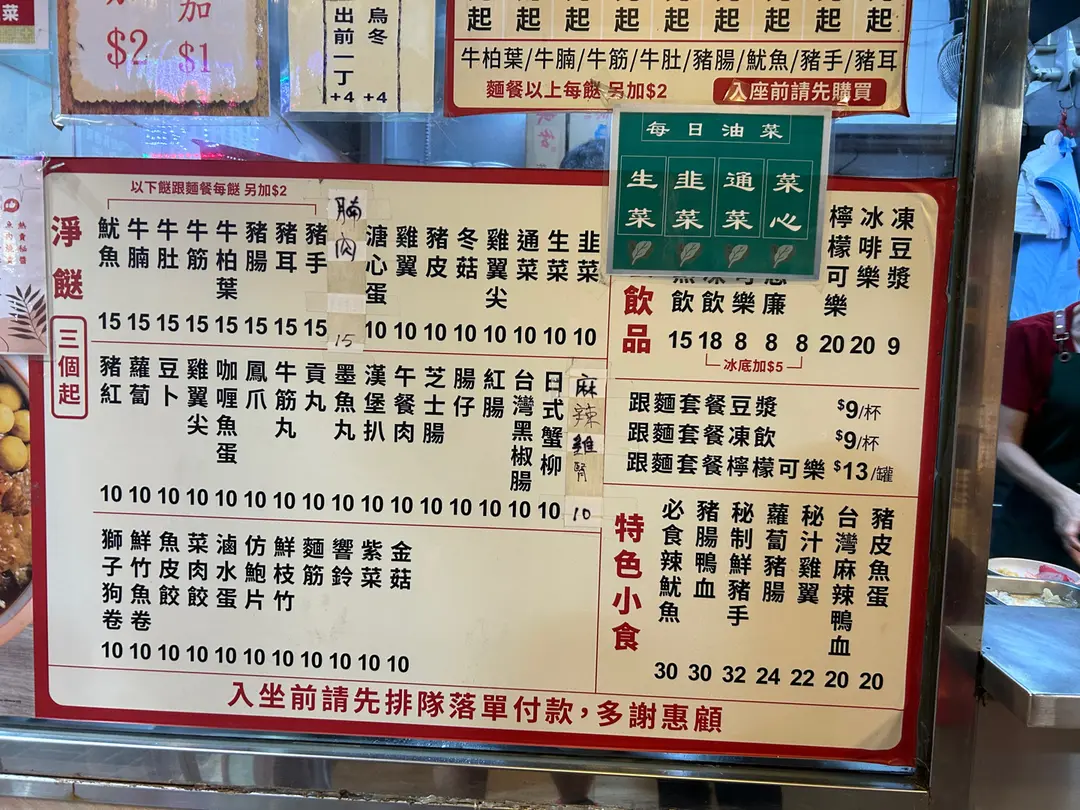 菜
加
$2 $1
出前一丁 +4
烏冬 +4
起 起 起 起 起 起 起 起 起
牛柏葉/牛腩/牛筋/牛肚/豬腸/魷魚/豬手/豬耳
麵餐以上每餸 另加$2
入座前請先購買
每日油菜
生菜
韭菜
通菜
菜心
淨餸
三個起
以下餸跟麵餐每餸 另加$2
魷魚 15
牛腩 15
牛肚 15
牛筋 15
牛柏葉 15
豬腸 15
豬耳 15
豬手 15
腩肉 15
溏心蛋 10
雞翼 10
豬皮 10
冬菇 10
雞翼尖 10
通菜 10
生菜 10
韭菜 10
豬紅 10
蘿蔔 10
豆卜 10
雞翼尖 10
咖喱魚蛋 10
鳳爪 10
牛筋丸 10
貢丸 10
墨魚丸 10
漢堡扒 10
午餐肉 10
芝士腸 10
腸仔 10
紅腸 10
台灣黑椒腸 10
日式蟹柳 10
麻辣雞腎 10
獅子狗卷 10
鮮竹魚卷 10
魚皮餃 10
菜肉餃 10
滷水蛋 10
仿鮑片 10
鮮枝竹 10
麵筋 10
響鈴 10
紫菜 10
金菇 10
飲品
飲 15
飲 18
樂 8
廉 8
8
檸檬可樂 20
冰啡樂 20
凍豆漿 9
冰底加$5
跟麵套餐豆漿 $9/杯
跟麵套餐凍飲 $9/杯
跟麵套餐檸檬可樂 $13/罐
特色小食
必食辣魷魚 30
豬腸鴨血 30
秘制鮮豬手 32
蘿蔔豬腸 24
秘汁雞翼 22
台灣麻辣鴨血 20
豬皮魚蛋 20
入坐前請先排隊落單付款，多謝惠顧